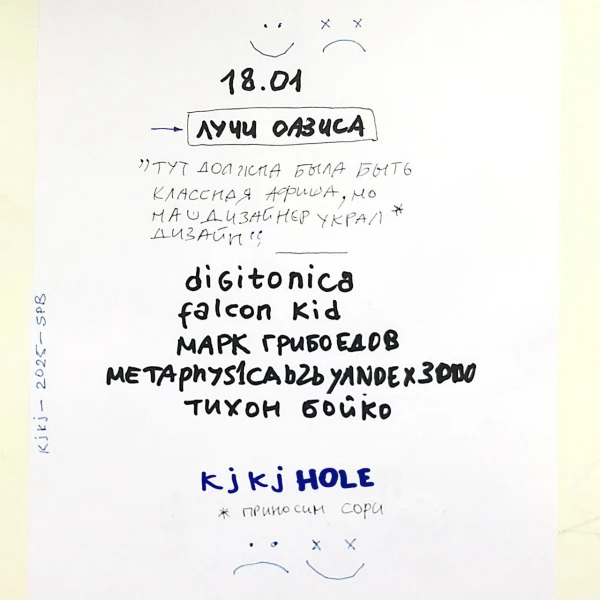 18.01
ЛУЧИ ОАЗИСА
"ТУТ ДОЛЖНА БЫЛА БЫТЬ
КЛАССНАЯ АФИША, НО
НАШ ДИЗАЙНЕР УКРАЛ *
ДИЗАЙН"
digitonica
falcon kid
МАРК ГРИБОЕДОВ
METAphYS1CAb2bYANDEX3000
ТИХОН БОЙКО
kjkj HOLE
* ПРИНОСИМ СОРИ
kjkj — 2025 — SPB